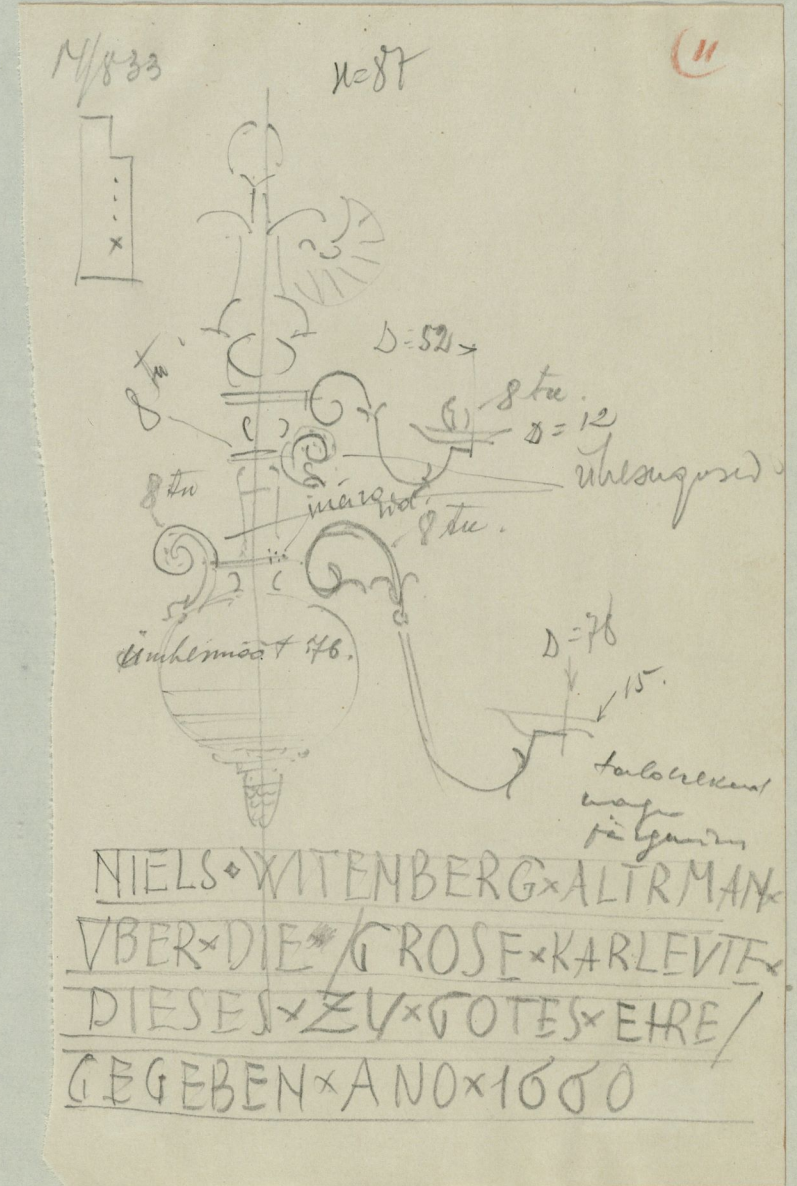 M/833
H=87
11
D=52
8 tu.
8 tu.
D=12
ühesugused
8 tu
märgid.
8 tu.
Ümbermõõt 76.
D=76
15.
nagu
NIELS⬥WITENBERG×ALTRMAN×
VBER×DIE/GROSE×KARLEVTE×
DIESES×ZV×GOTES×EHRE/
GEGEBEN×ANO×1660